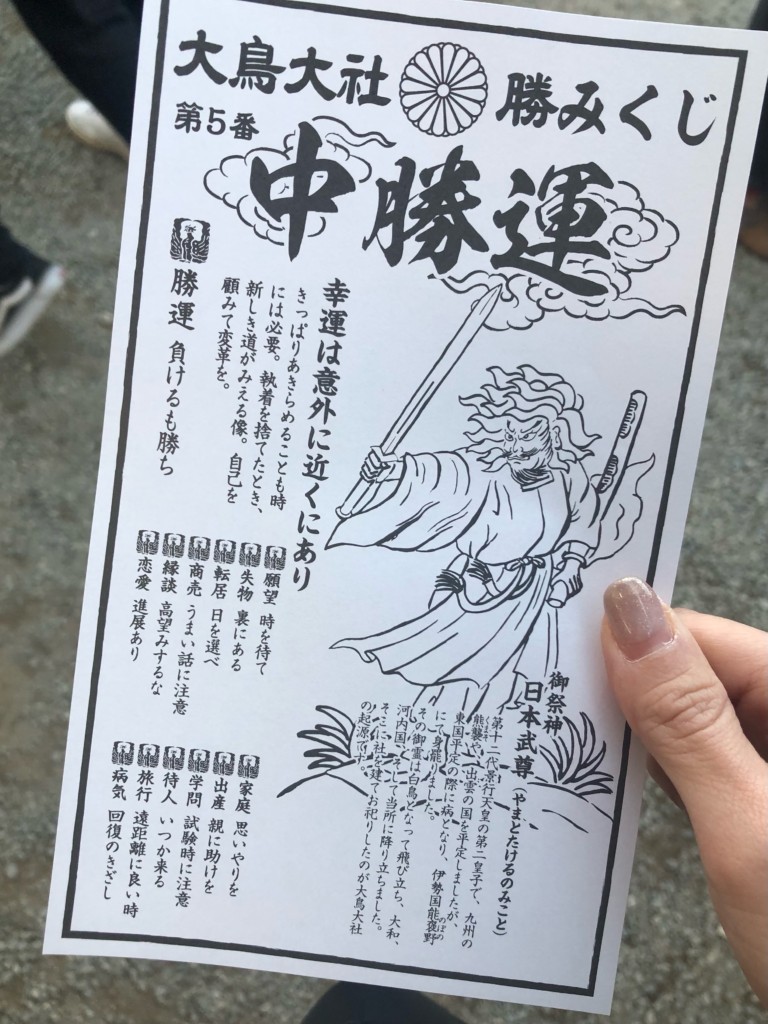 大鳥大社 勝みくじ
第5番
中勝運
幸運は意外に近くにあり
きっぱりあきらめることも時
には必要。執着を捨てたとき、
新しき道がみえる像。自己を
顧みて変革を。
勝運 負けるも勝ち
願望 時を待て
失物 裏にある
転居 日を選べ
商売 うまい話に注意
縁談 高望みするな
恋愛 進展あり
家庭 思いやりを
出産 親に助けを
学問 試験時に注意
待人 いつか来る
旅行 遠距離に良い時
病気 回復のきざし
御祭神
日本武尊(やまとたけるのみこと)
第十二代景行天皇の第二皇子で、九州の
熊襲や、出雲の国を平定しましたが、
東国平定の際に病となり、伊勢国能褒野
にて身罷りました。
その御霊は白鳥となって飛び立ち、大和、
河内国、そして当所に降り立ちました。
そこに社を建てお祀りしたのが大鳥大社
の起源です。